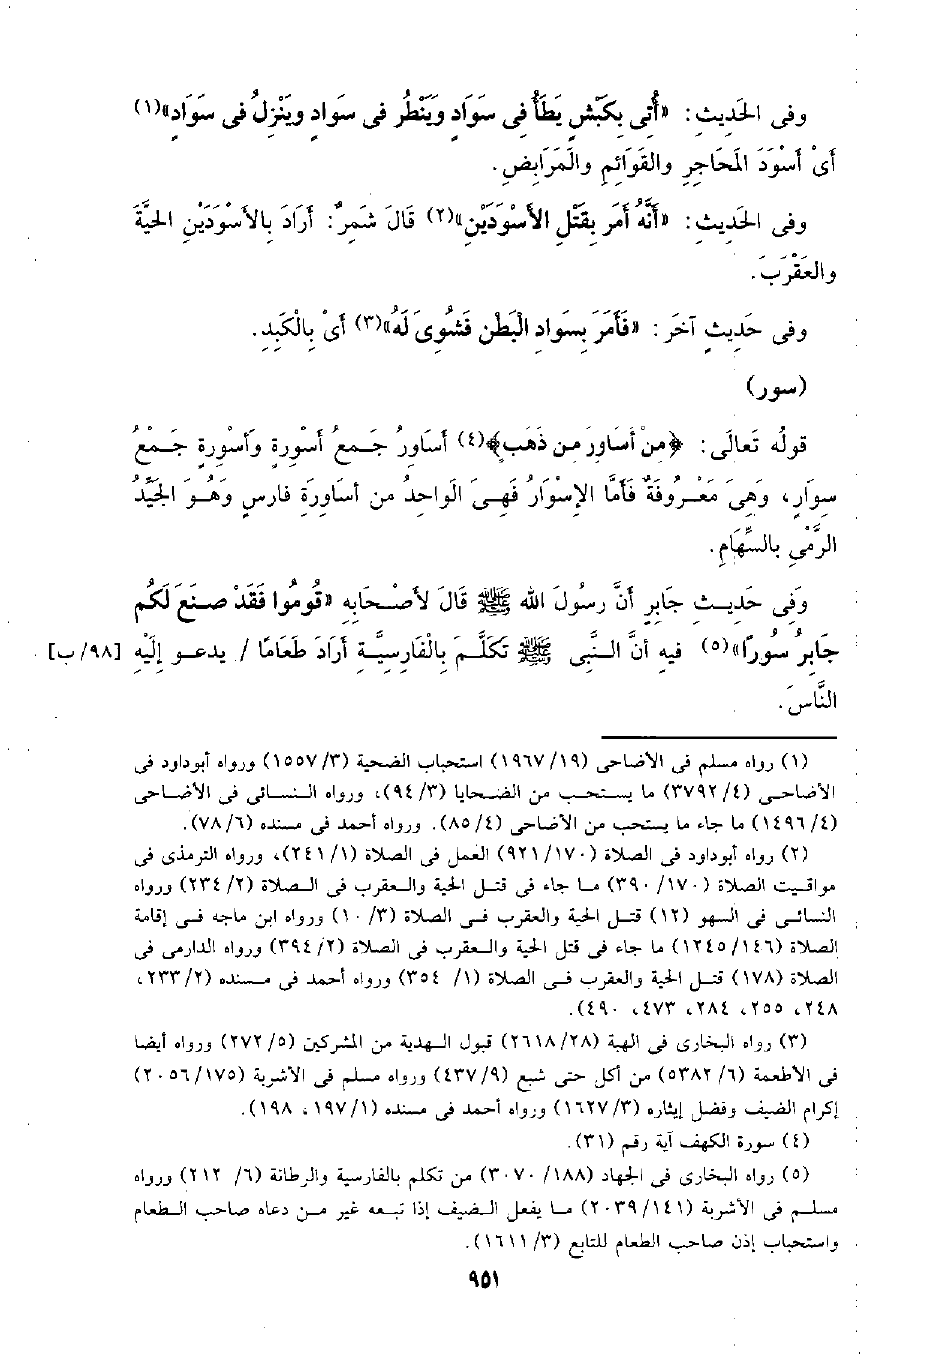 وفى الحَدِيثِ: «أُتِى بِكَبْشٍ يَطَأُ فِى سَوَادٍ وَيَنْظُر فى سوادٍ ويَنْزِلُ فى سوَادٍ»(١)
أَىْ أَسْوَدَ المَحَاجِرِ والقَوَائِمِ والَمَرَابِضِ.
وفى الحَديثِ: «أَنَّهُ أَمَر بِقَتْلِ الأسْوَدَيْنِ»(٢) قَالَ شَمِرٌ: أَرَادَ بِالأسْوَدَيْنِ الحيَّةَ
والعَقْرَبَ.
وفى حَدِيثٍ آخَرَ: «فَأَمَرَ بِسوادِ الْبَطْنِ فَشُوِىَ لَهُ»(٣) أَىْ بِالْكَبِدِ.
(سور)
قولُه تَعالَى: ﴿مِنْ أسَاوِرَ مِن ذَهَبٍ﴾(٤) أسَاوِرُ جَمعُ أَسْوِرةٍ وأَسْوِرةٍ جَمْعُ
سِوارٍ، وَهِىَ مَعْرُوفَةٌ فأمَّا الإسْوَارُ فَهِىَ الوَاحِدُ من أسَاوِرَةِ فارِسٍ وَهُوَ الجَيِّدُ
الرَّمْىِ بالسِّهَامِ.
وَفِى حَدِيثِ جَابِرٍ أنَّ رسُولَ اللهِ ﷺ قَالَ لأصْحَابِهِ «قُومُوا فَقَدْ صنَعَ لَكُم
جَابِرُ سُورًا»(٥) فيهِ أنَّ النَّبِى ﷺ تَكَلَّمَ بِالْفَارِسيَّةِ أرَادَ طَعَامًا / يدعو إلَيْهِ [٩٨/ب]
النَّاسَ.
(١) رواه مسلم فى الأضاحى (١٩٦٧/١٩) استحباب الضحية (١٥٥٧/٣) ورواه أبوداود فى
الأضاحى (٣٧٩٢/٤) ما يستحب من الضحايا (٩٤/٣)، ورواه النسائى فى الأضاحى
(١٤٩٦/٤) ما جاء ما يستحب من الأضاحى (٨٥/٤). ورواه أحمد فى مسنده (٧٨/٦).
(٢) رواه أبوداود فى الصلاة (٩٢١/١٧٠) العمل فى الصلاة (٢٤١/١)، ورواه الترمذى فى
مواقيت الصلاة (٣٩٠/١٧٠) ما جاء فى قتل الحية والعقرب فى الصلاة (٢٣٤/٢) ورواه
النسائى فى السهو (١٢) قتل الحية والعقرب فى الصلاة (١٠/٣) ورواه ابن ماجه فى إقامة
الصلاة (١٢٤٥/١٤٦) ما جاء فى قتل الحية والعقرب فى الصلاة (٣٩٤/٢) ورواه الدارمى فى
الصلاة (١٧٨) قتل الحية والعقرب فى الصلاة (٣٥٤/١) ورواه أحمد فى مسنده (٢٣٣/٢،
٢٤٨، ٢٥٥، ٢٨٤، ٤٧٣، ٤٩٠).
(٣) رواه البخارى فى الهبة (٢٦١٨/٢٨) قبول الهدية من المشركين (٢٧٢/٥) ورواه أيضا
فى الأطعمة (٥٣٨٢/٦) من أكل حتى شبع (٤٣٧/٩) ورواه مسلم فى الأشربة (٢٠٥٦/١٧٥)
إكرام الضيف وفضل إيثاره (١٦٢٧/٣) ورواه أحمد فى مسنده (١٩٧/١، ١٩٨).
(٤) سورة الكهف آية رقم (٣١).
(٥) رواه البخارى فى الجهاد (٣٠٧٠/١٨٨) من تكلم بالفارسية والرطانة (٢١٢/٦) ورواه
مسلم فى الأشربة (٢٠٣٩/١٤١) ما يفعل الضيف إذا تبعه غير من دعاه صاحب الطعام
واستحباب إذن صاحب الطعام للتابع (١٦١١/٣).
٩٥١